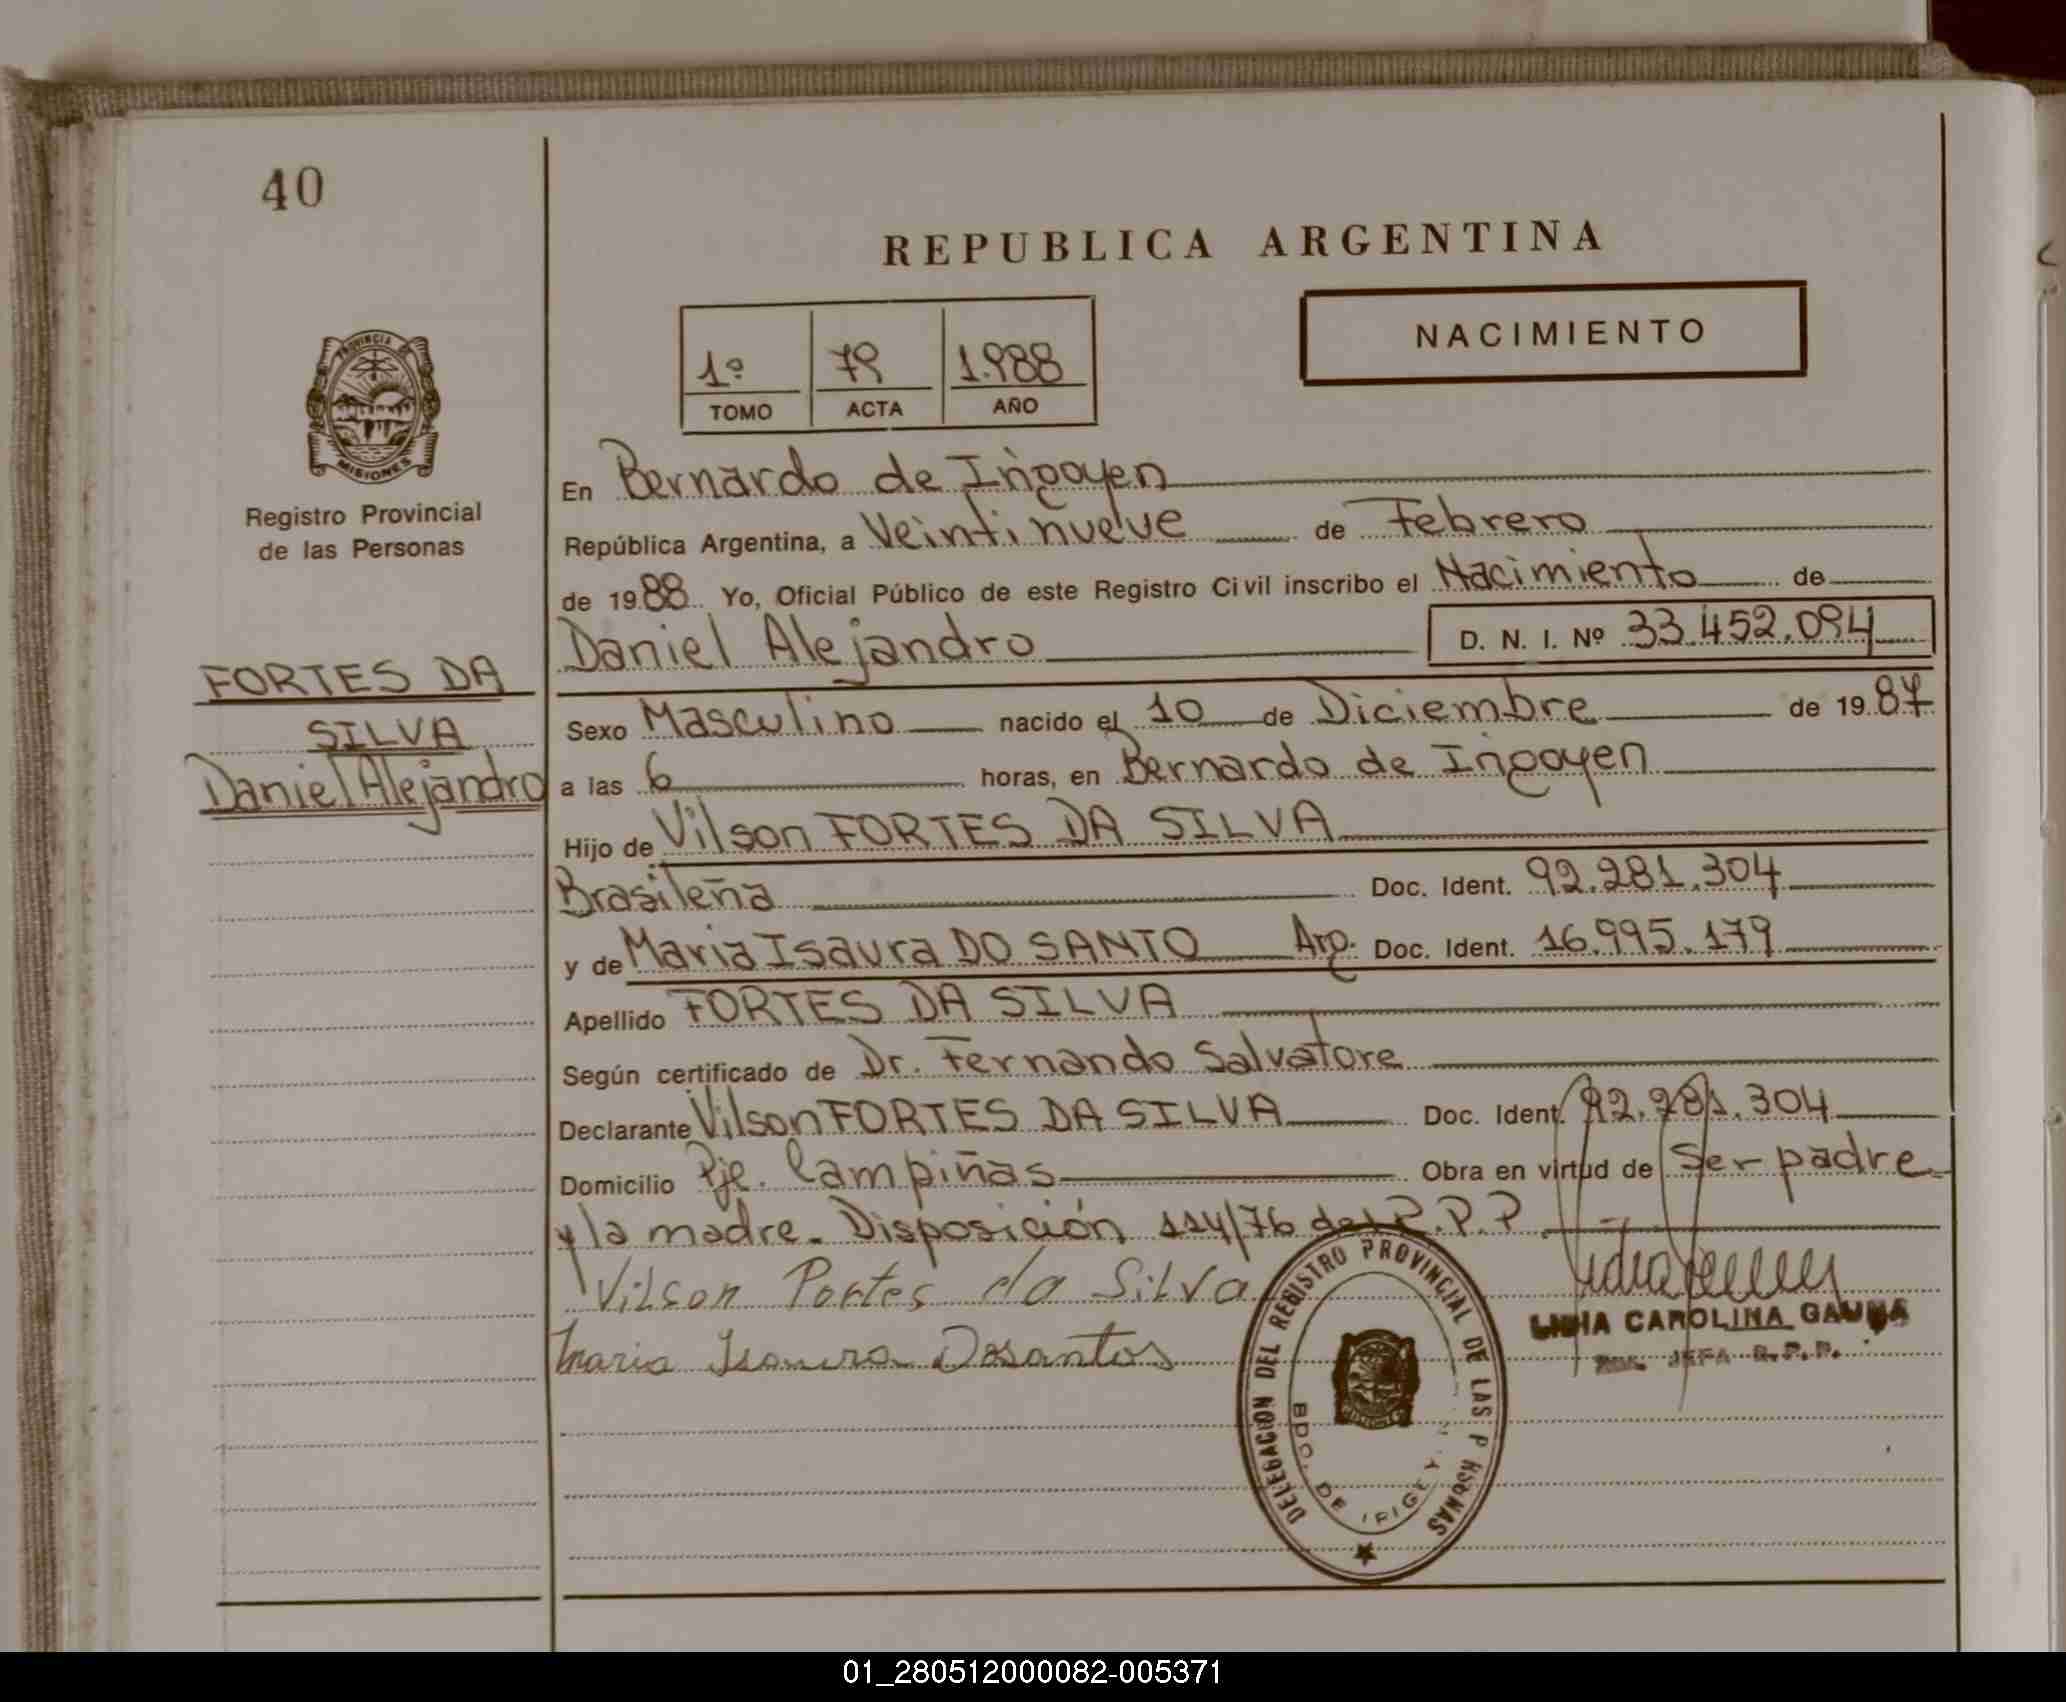 40
REPUBLICA ARGENTINA
NACIMIENTO
1º 79 1.988
TOMO ACTA AÑO
PROVINCIA DE
MISIONES
Registro Provincial
de las Personas
FORTES DA
SILVA
Daniel Alejandro
En Bernardo de Irigoyen
República Argentina, a Veintinueve de Febrero
de 1988 Yo, Oficial Público de este Registro Civil inscribo el Nacimiento de
Daniel Alejandro D. N. I. Nº 33.452.094
Sexo Masculino nacido el 10 de Diciembre de 1987
a las 6 horas, en Bernardo de Irigoyen
Hijo de Vilson FORTES DA SILVA
Brasileña Doc. Ident. 92.281.304
y de Maria Isaura DO SANTO Arg. Doc. Ident. 16.995.179
Apellido FORTES DA SILVA
Según certificado de Dr. Fernando Salvatore
Declarante Vilson FORTES DA SILVA Doc. Ident. 92.281.304
Domicilio Pje. Campiñas Obra en virtud de Ser padre
y la madre. Disposición 114/76 del R.P.P
Vilson Portes da Silva
Maria Isaura Dosantos
LIDIA CAROLINA GAUNA
JEFA R.P.P.
DELEGACION DEL REGISTRO PROVINCIAL DE LAS P RSONAS
BDO. DE IRIGEY
01_280512000082-005371